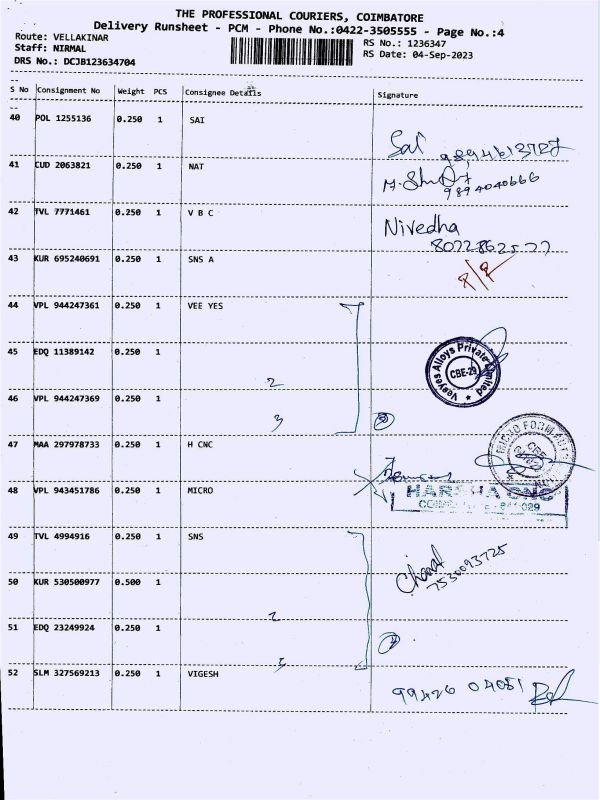 THE PROFESSIONAL COURIERS, COIMBATORE
Delivery Runsheet - PCM - Phone No.:0422-3505555 - Page No.:4
Route: VELLAKINAR
RS No.: 1236347
Staff: NIRMAL
RS Date: 04-Sep-2023
DRS No.: DCJB123634704
S No Consignment No Weight PCS Consignee Details Signature
40 POL 1255136 0.250 1 SAI
Sai
41 CUD 2063821 0.250 1 NAT
9894040666
42 TVL 7771461 0.250 1 V B C
Nivedha
43 KUR 695240691 0.250 1 SNS A
44 VPL 944247361 0.250 1 VEE YES
45 EDQ 11389142 0.250 1
Veeyes Alloys Private Limited
CBE-29
2
46 VPL 944247369 0.250 1
3
3
47 MAA 297978733 0.250 1 H CNC
MICRO FORM
48 VPL 943451786 0.250 1 MICRO
HARSHA CNC
49 TVL 4994916 0.250 1 SNS
7530093725
50 KUR 530500977 0.500 1
2
51 EDQ 23249924 0.250 1
52 SLM 327569213 0.250 1 VIGESH
99426 04081